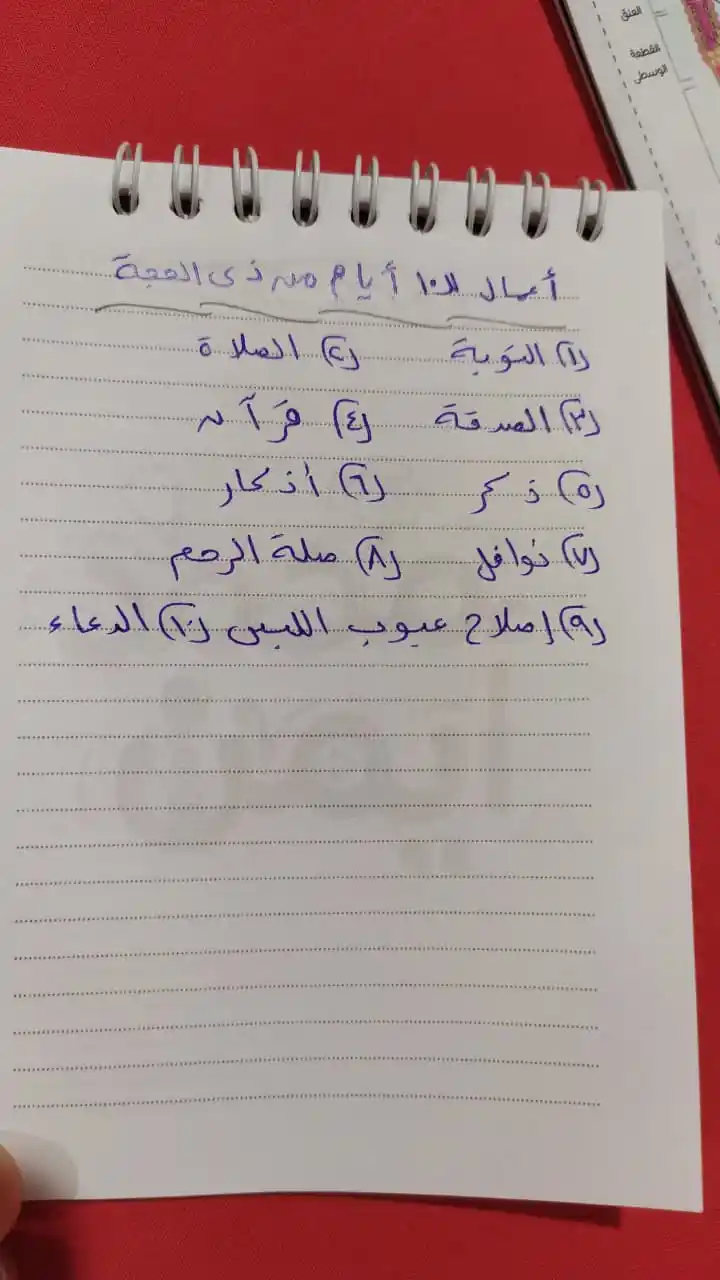 العنق
القطعة
الوسطى
أعمال الـ١٠ أيام من ذى الحجة
(١) التوبة (٢) الصلاة
(٣) الصدقة (٤) قرآن
(٥) ذكر (٦) أذكار
(٧) نوافل (٨) صلة الرحم
(٩) إصلاح عيوب (١٠) الدعاء